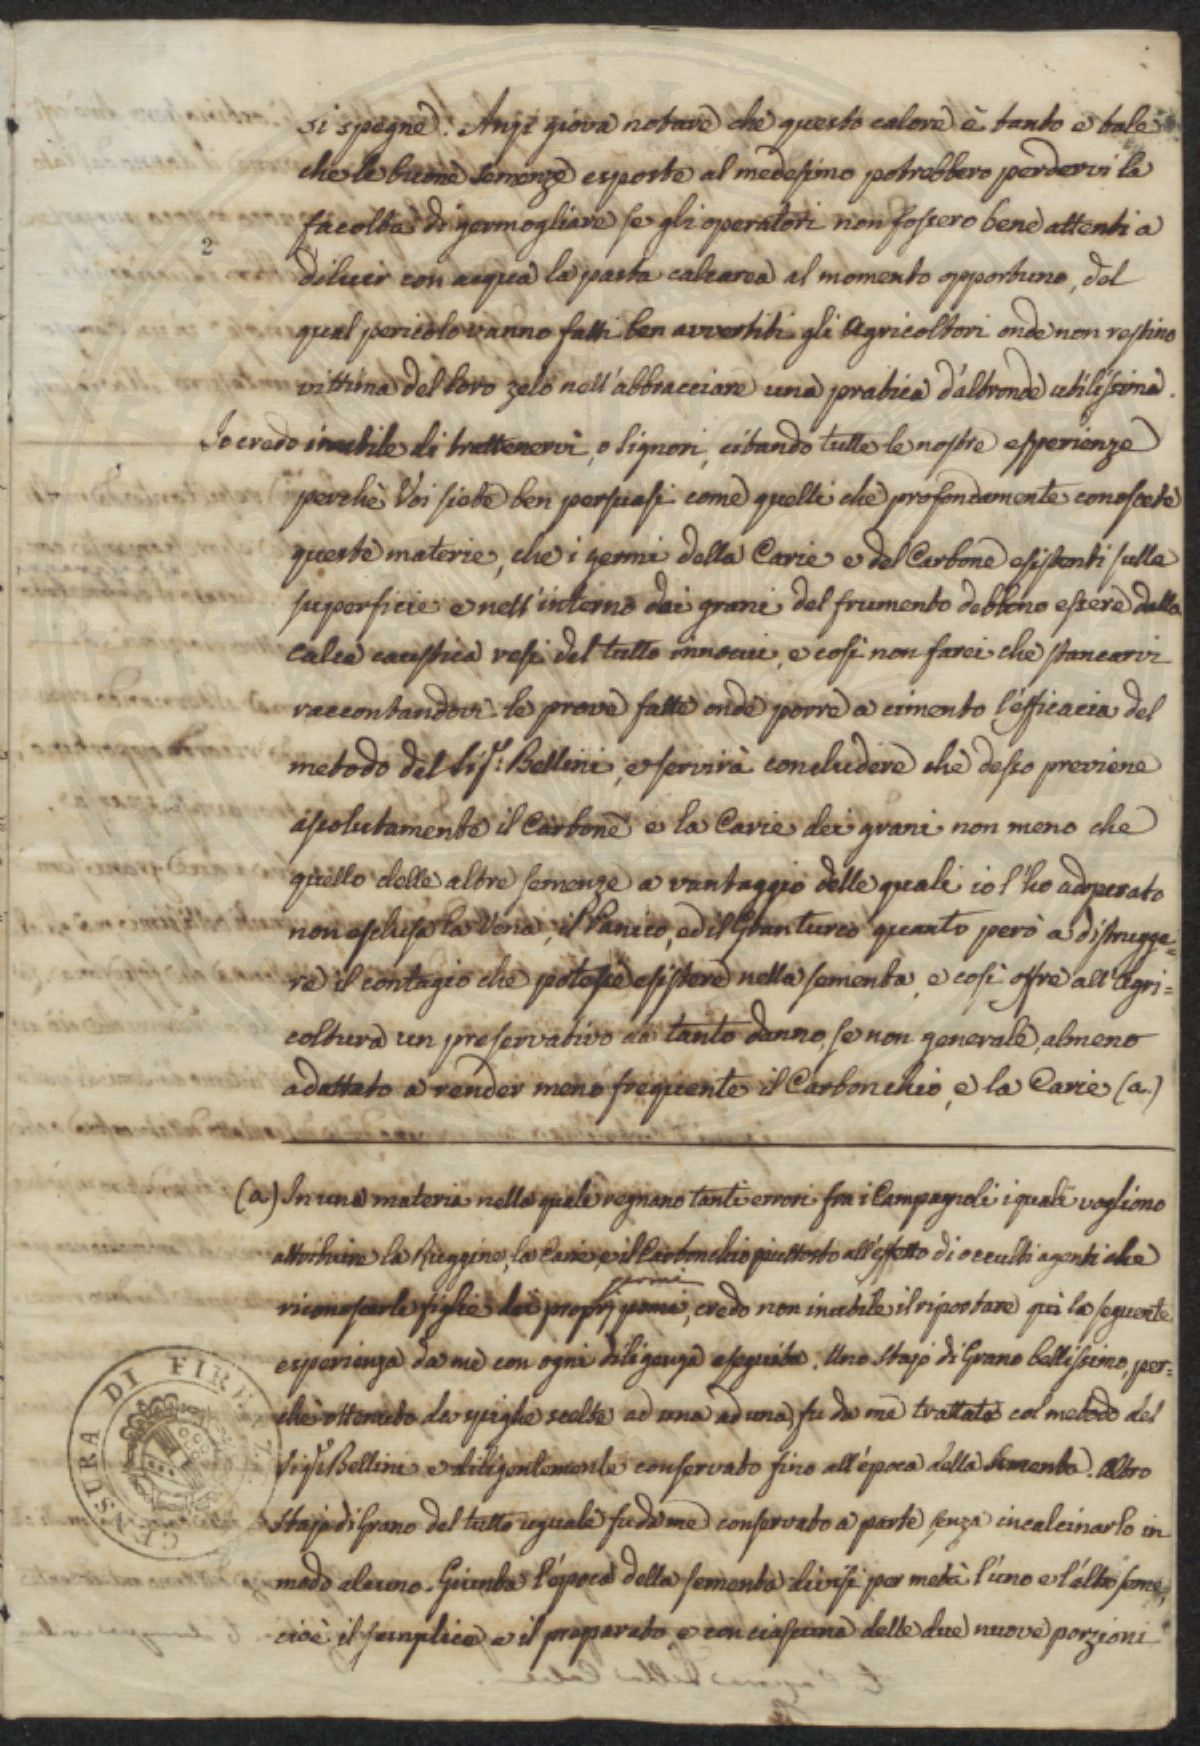 si spegne. Anzi giova notare che questo calore è tanto e tale
che le buone semenze esposte al medesimo potrebbero perdervi la
facoltà di germogliare se gli operatori non fossero bene attenti a
2
diluir con acqua la pasta calcarea al momento opportuno, del
qual pericolo vanno fatti ben avvertiti gli Agricoltori onde non restino
vittima del loro zelo nell'abbracciare una pratica d'altronde utilissima.
Io credo inutile di trattenervi, o Signori, citando tutte le nostre esperienze
perchè Voi siete ben persuasi come quelli che profondamente conoscete
queste materie, che i germi della Carie e del Carbone esistenti sulla
superficie e nell'interno dei grani del frumento debbono essere dalla
Calce caustica resi del tutto innocui, e così non farei che stancarvi
raccontandovi le prove fatte onde porre a cimento l'efficacia del
metodo del Sig.r Bellini, e servirà concludere che desso previene
assolutamente il Carbone e la Carie dei grani non meno che
quello delle altre semenze a vantaggio delle quali io l'ho adoperato
non esclusa la Vena, il Panico, ed il Granturco quanto però a distrugge=
re il contagio che potesse esistere nella sementa, e così offre all'Agri=
coltura un preservativo da tanto danno, se non generale, almeno
adattato a render meno frequente il Carbonchio, e la Carie (a.)
(a) In una materia nella quale regnano tanti errori fra i Campagnoli i quali vogliono
attribuire la Ruggine, la Carie, e il Carbonchio piuttosto all'effetto di occulti agenti che
germi
riconoscerle figlie dei proprj semi, credo non inutile il riportare qui la seguente
esperienza da me con ogni diligenza eseguita. Uno Stajo di Grano bellissimo, per=
chè ottenuto da spighe scelte ad una ad una, fu da me trattato col metodo del
Sig.r Bellini e diligentemente conservato fino all'época della Sementa. Altro
Stajo di Grano del tutto uguale fu da me conservato a parte senza incalcinarlo in
modo alcuno. Giunta l'época della sementa divisi per metà l'uno e l'altro seme,
cioè il semplice e il preparato, e con ciascuna delle due nuove porzioni
CENSURA DI FIRENZE